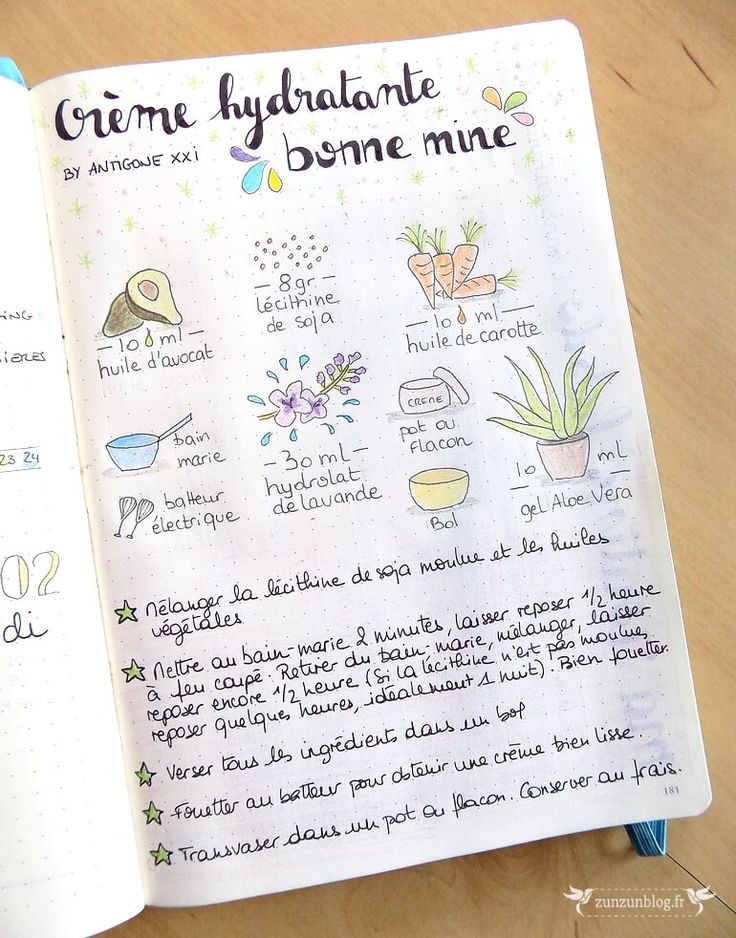 Crème hydratante
bonne mine
BY ANTIGONE XXI
8gr
lécithine
de soja
10 ml
huile d'avocat
10 ml
huile de carotte
bain
marie
batteur
électrique
30 ml
hydrolat
de lavande
CREME
pot ou
flacon
Bol
10 ml
gel Aloe Vera
Mélanger la lécithine de soja moulue et les huiles
végétales
Mettre au bain-marie 2 minutes, laisser reposer 1/2 heure
à feu coupé. Retirer du bain-marie, mélanger, laisser
reposer encore 1/2 heure (Si la lécithine n'est pas moulue,
reposer quelques heures, idéalement 1 nuit). Bien fouetter.
Verser tous les ingrédients dans un bol
Fouetter au batteur pour obtenir une crème bien lisse.
Transvaser dans un pot ou flacon. Conserver au frais.
181
23 24
02
di
zunzunblog.fr